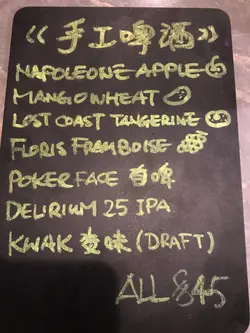 《手工啤酒》
NAPOLEONE APPLE
MANGO WHEAT
LOST COAST TANGERINE
FLORIS FRAMBOISE
POKER FACE 白啤
DELIRIUM 25 IPA
KWAK 麦味 (DRAFT)
ALL $45